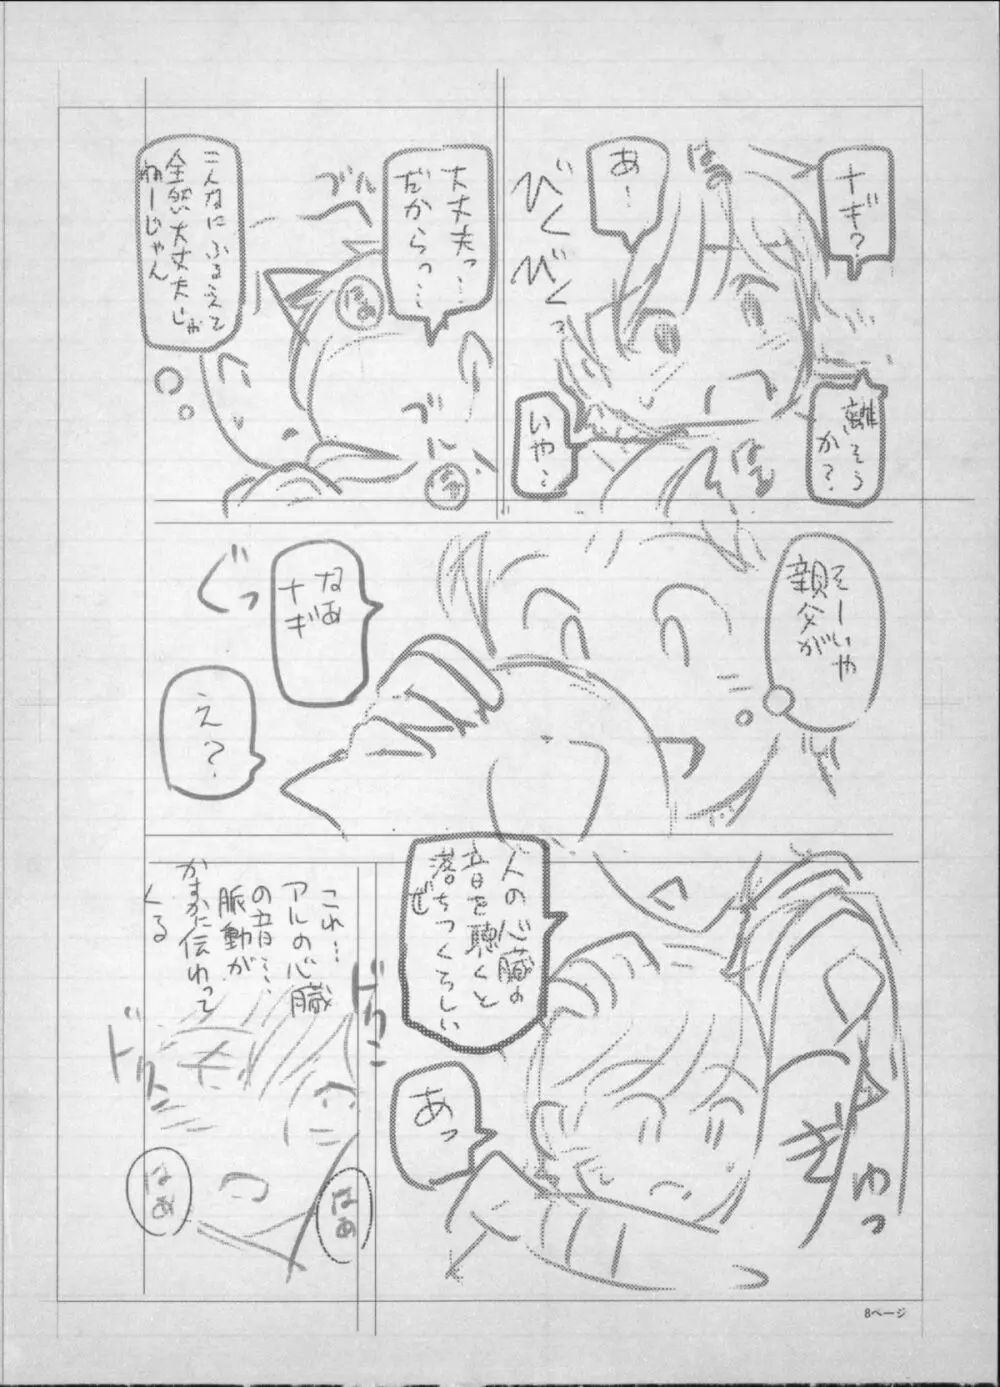 ナギ?
離そう
か?
あ…
いや…
びくびくっ
大丈夫っ…
だからっ…
ブル
ブル
はぁ
こんなにふるえて
全然大丈夫じゃ
ねーじゃん
そーいや
親父が
なあ
ナギ
ぐっ
え?
人の心臓の
音を聴くと
落ちつくらしい
ぜ
あっ
ぎゅっ
これ…
アルの心臓
の音…
脈動が
かすかに伝わって
くる
ドクン
ドクン
はぁ
はぁ
8ページ